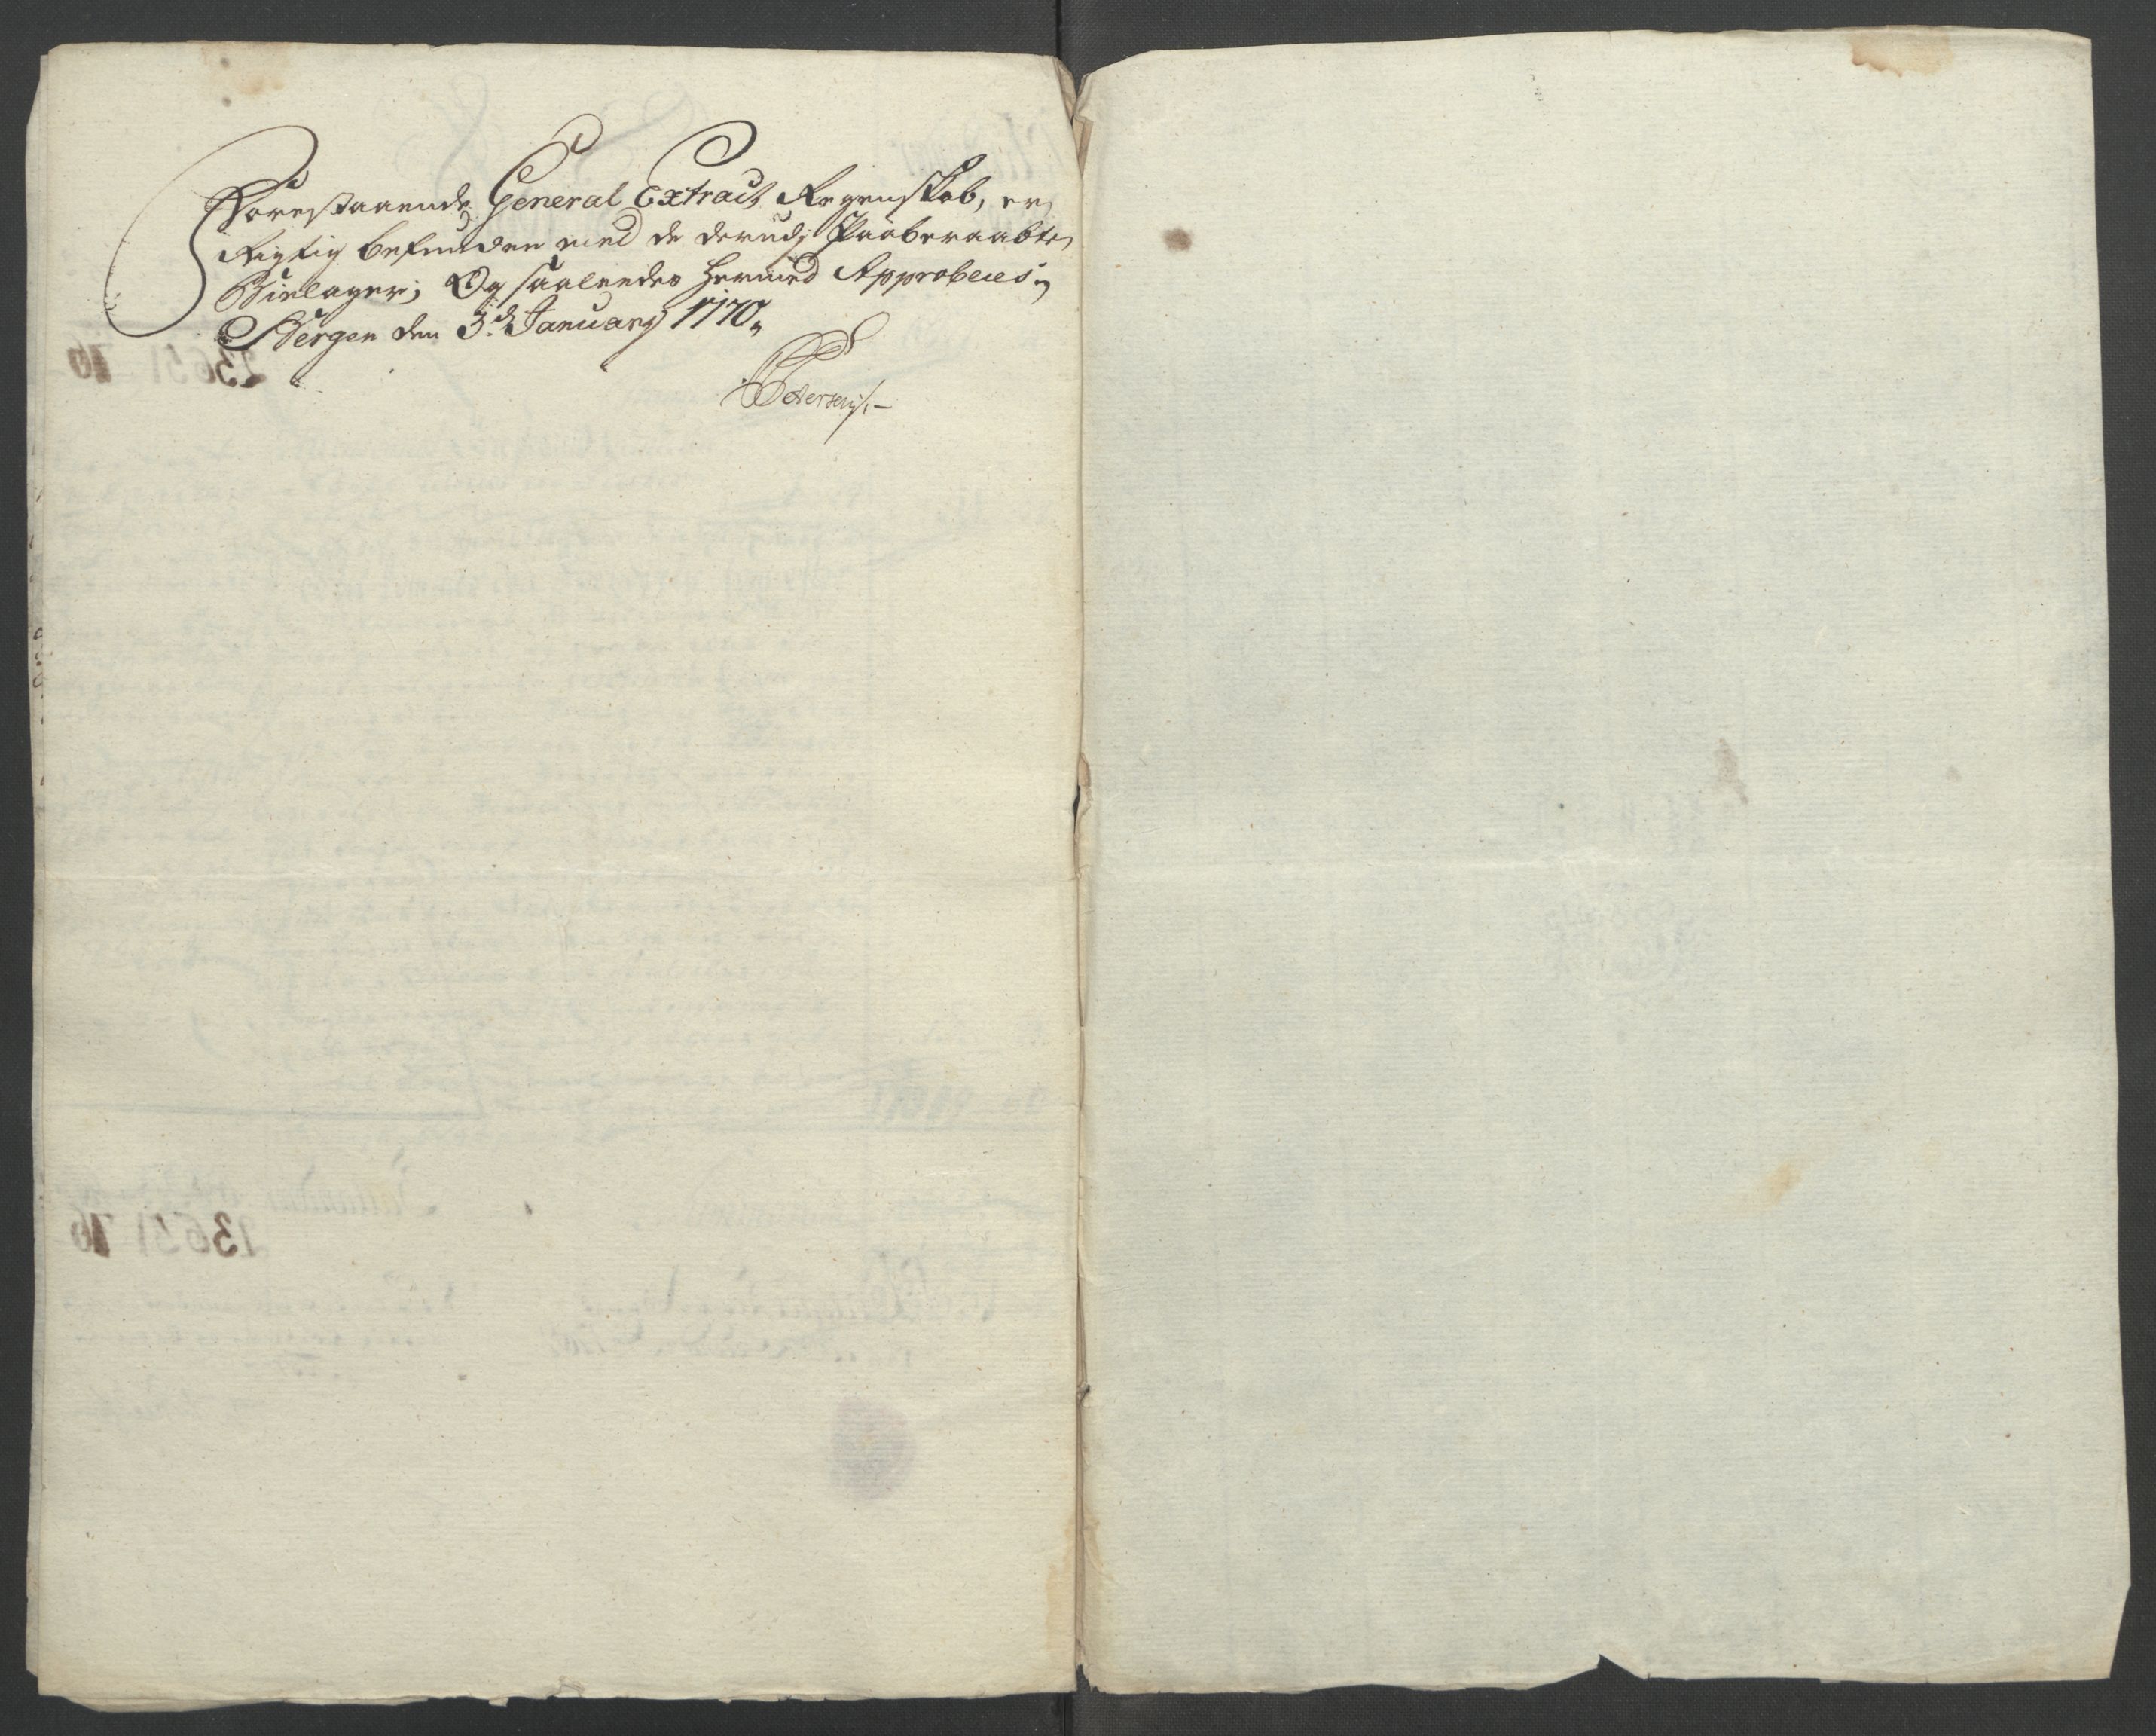 Forestaaende General Extract Regenskab, er
Rigtig befunden med de derudj Paaberaabte
Bielager; Og saaledes hermed Approberes,
Bergen den 3.d January 1770.
Petersen